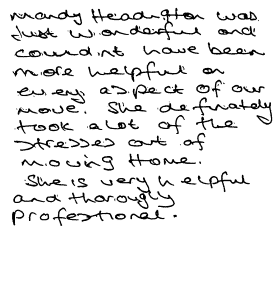 Mandy Headington was
Just wonderful and
couldnt have been
more helpful on
every aspect of our
move. She definately
took alot of the
stresses out of
moving Home.
She is very helpful
and thorougly
Professional.